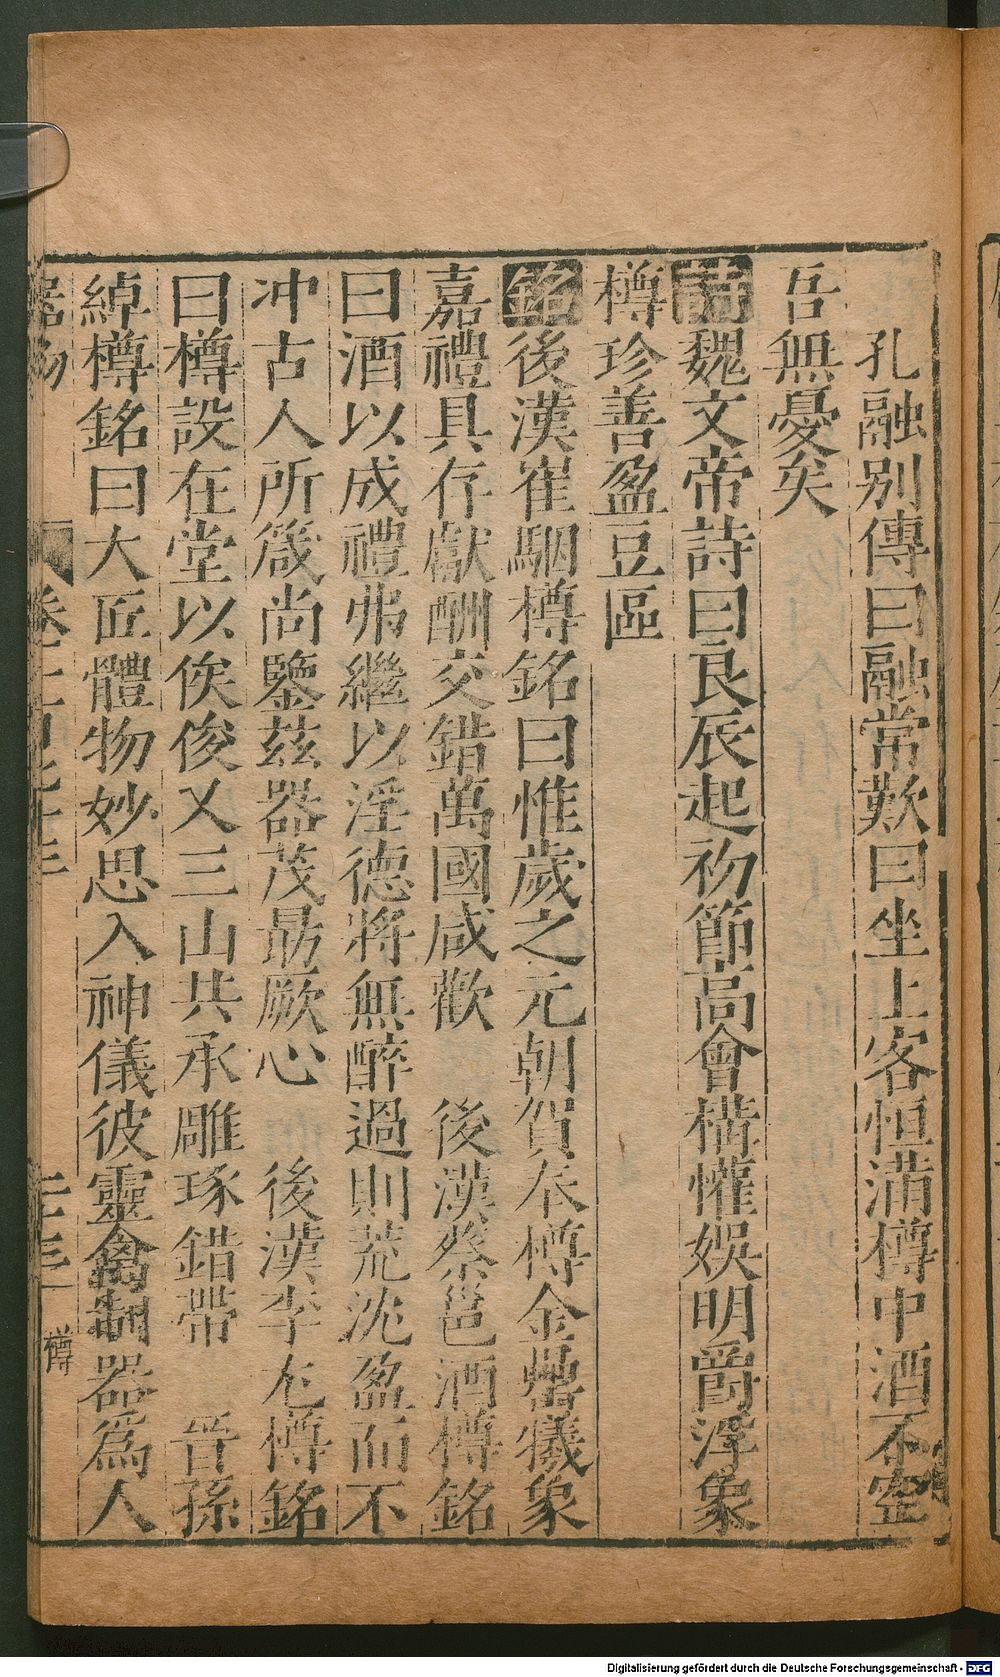 孔融別傳曰融常歎曰坐上客恒滿樽中酒不空
吾無憂矣
詩魏文帝詩曰良辰起初節高會構懽娛明爵浮象
樽珍善盈豆區
銘後漢崔駰樽銘曰惟歲之元朝賀奉樽金罍犧象
嘉禮具存獻酬交錯萬國咸歡　後漢蔡邕酒樽銘
曰酒以成禮弗繼以淫德將無醉過則荒沈盈而不
冲古人所箴尚鑒茲器茂勗厥心　後漢李尤樽銘
曰樽設在堂以俟俊乂三山共承雕琢錯帶　晉孫
綽樽銘曰大匠體物妙思入神儀彼靈禽制器為人
器物
樽
Digitalisierung gefördert durch die Deutsche Forschungsgemeinschaft - DFG